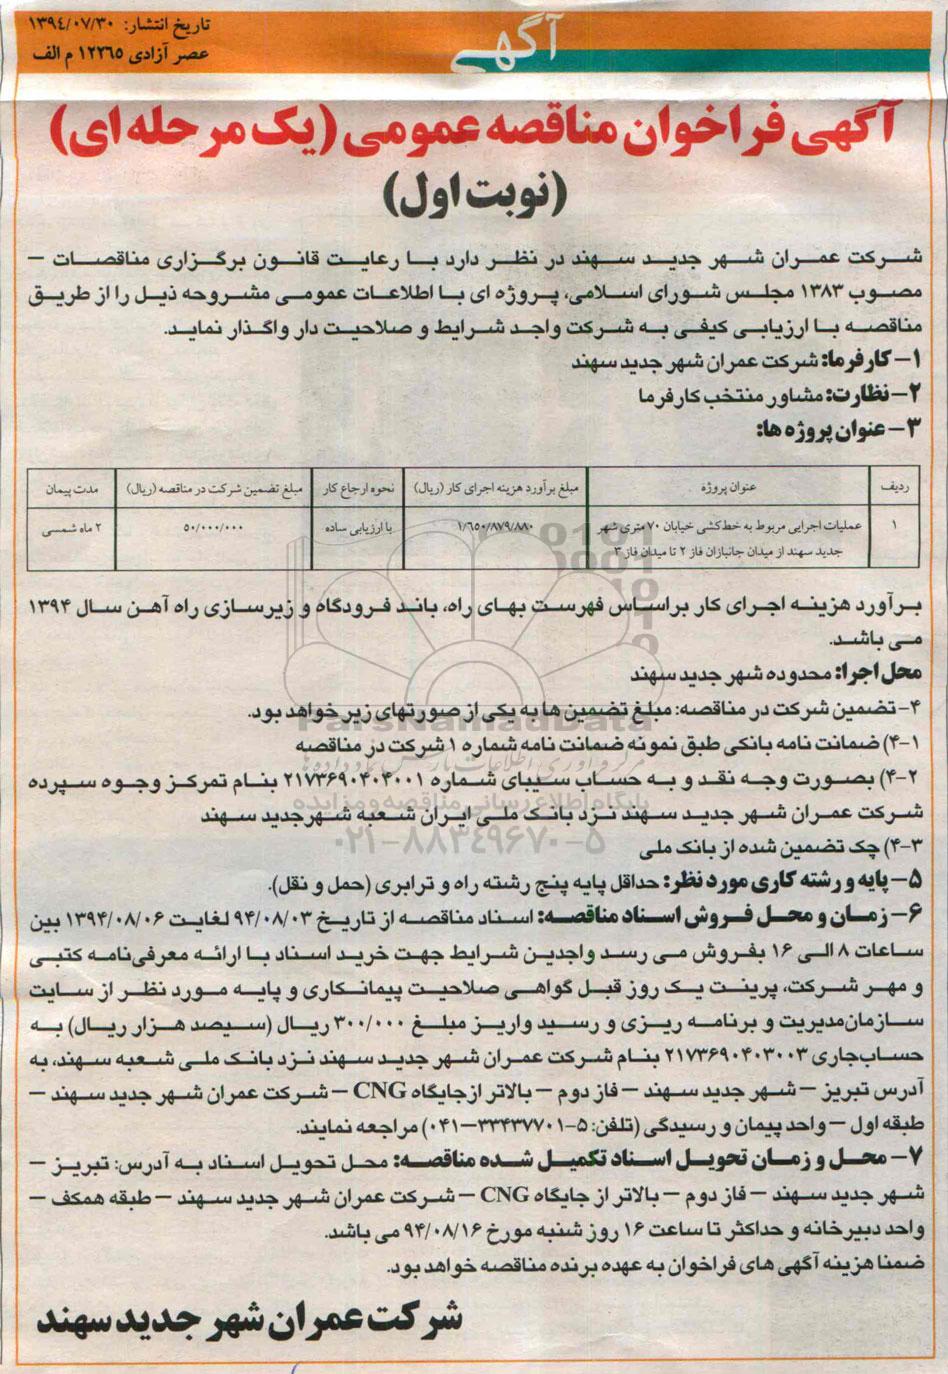 تاریخ انتشار: ۱۳۹٤/۰۷/۳۰
عصر آزادی ۱۲۲٦٥ م الف
آگهی
آگهی فراخوان مناقصه عمومی (یک مرحله ای)
(نوبت اول)
شرکت عمران شهر جدید سهند در نظر دارد با رعایت قانون برگزاری مناقصات –
مصوب ۱۳۸۳ مجلس شورای اسلامی، پروژه ای با اطلاعات عمومی مشروحه ذیل را از طریق
مناقصه با ارزیابی کیفی به شرکت واجد شرایط و صلاحیت دار واگذار نماید.
۱- کارفرما: شرکت عمران شهر جدید سهند
۲- نظارت: مشاور منتخب کارفرما
۳- عنوان پروژه ها:
ردیف عنوان پروژه مبلغ برآورد هزینه اجرای کار (ریال) نحوه ارجاع کار مبلغ تضمین شرکت در مناقصه (ریال) مدت پیمان
۱ عملیات اجرایی مربوط به خط‌کشی خیابان ۷۰ متری شهر ۱/٦٥۰/۸۷۹/۸۸۰ با ارزیابی ساده ٥۰/۰۰۰/۰۰۰ ۲ ماه شمسی
جدید سهند از میدان جانبازان فاز ۲ تا میدان فاز ۳
برآورد هزینه اجرای کار براساس فهرست بهای راه، باند فرودگاه و زیرسازی راه آهن سال ۱۳۹۴
می باشد.
محل اجرا: محدوده شهر جدید سهند
۴- تضمین شرکت در مناقصه: مبلغ تضمین ها به یکی از صورتهای زیر خواهد بود.
۴-۱) ضمانت نامه بانکی طبق نمونه ضمانت نامه شماره ۱ شرکت در مناقصه
۴-۲) بصورت وجه نقد و به حساب سیبای شماره ۲۱۷۳۶۹۰۴۰۴۰۰۱ بنام تمرکز وجوه سپرده
شرکت عمران شهر جدید سهند نزد بانک ملی ایران شعبه شهرجدید سهند
۴-۳) چک تضمین شده از بانک ملی
۵- پایه و رشته کاری مورد نظر: حداقل پایه پنج رشته راه و ترابری (حمل و نقل).
۶- زمان و محل فروش اسناد مناقصه: اسناد مناقصه از تاریخ ۹۴/۰۸/۰۳ لغایت ۱۳۹۴/۰۸/۰۶ بین
ساعات ۸ الی ۱۶ بفروش می رسد واجدین شرایط جهت خرید اسناد با ارائه معرفی‌نامه کتبی
و مهر شرکت، پرینت یک روز قبل گواهی صلاحیت پیمانکاری و پایه مورد نظر از سایت
سازمان مدیریت و برنامه ریزی و رسید واریز مبلغ ۳۰۰/۰۰۰ ریال (سیصد هزار ریال) به
حساب‌جاری ۲۱۷۳۶۹۰۴۰۳۰۰۳ بنام شرکت عمران شهر جدید سهند نزد بانک ملی شعبه سهند، به
آدرس تبریز – شهر جدید سهند – فاز دوم – بالاتر ازجایگاه CNG – شرکت عمران شهر جدید سهند –
طبقه اول – واحد پیمان و رسیدگی (تلفن: ۵-۳۳۴۳۷۷۰۱–۰۴۱) مراجعه نمایند.
۷- محل و زمان تحویل اسناد تکمیل شده مناقصه: محل تحویل اسناد به آدرس: تبریز –
شهر جدید سهند – فاز دوم – بالاتر از جایگاه CNG – شرکت عمران شهر جدید سهند – طبقه همکف –
واحد دبیرخانه و حداکثر تا ساعت ۱۶ روز شنبه مورخ ۹۴/۰۸/۱۶ می باشد.
ضمنا هزینه آگهی های فراخوان به عهده برنده مناقصه خواهد بود.
شرکت عمران شهر جدید سهند
ParsNamadData
مرکز فرآوری اطلاعات پارس نماد داده‌ها
پایگاه اطلاع رسانی مناقصه و مزایده
۰۲۱-۸۸۳٤۹٦۷۰-۵